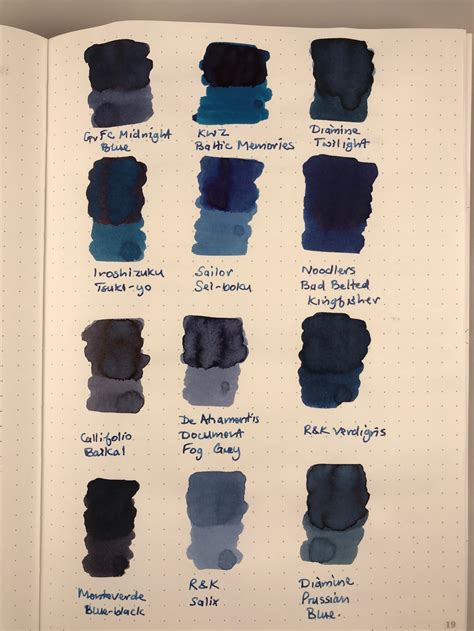 GvFC Midnight
Blue
KWZ
Baltic Memories
Diamine
Twilight
Iroshizuku
Tsuki-yo
Sailor
Sei-boku
Noodlers
Bad Belted
Kingfisher
Callifolio
Baikal
De Atramentis
Document
Fog Grey
R&K Verdigris
Monteverde
Blue-black
R&K
Salix
Diamine
Prussian
Blue.
19